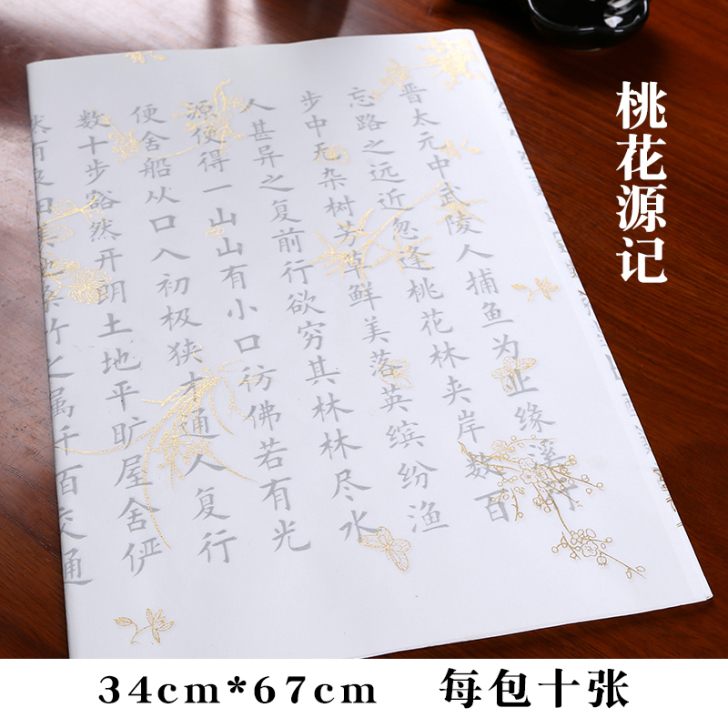 桃花源记
晋太元中武陵人捕鱼为业缘溪行
忘路之远近忽逢桃花林夹岸数百
步中无杂树芳草鲜美落英缤纷渔
人甚异之复前行欲穷其林林尽水
源便得一山山有小口彷佛若有光
便舍船从口入初极狭才通人复行
数十步豁然开朗土地平旷屋舍俨
竹之属 交通
34cm*67cm 每包十张